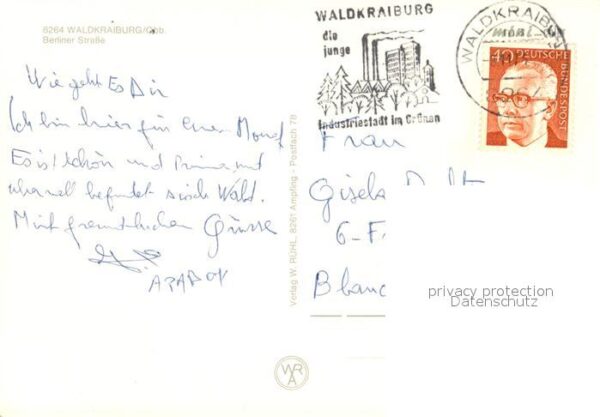 8264 WALDKRAIBURG/Obb.
Berliner Straße
Wie geht Es Dir
Ich bin hier für einen Monat
Es ist schön und Prima, mit
überall befindet sich Wald.
Mit freundlichen Grüsse
Verlag W. RÜHL, 8261 Ampfing - Postfach 78
WRA
WALDKRAIBURG
die
junge
Industriestadt im Grünen
WALDKRAIBURG
8264
40 DEUTSCHE
BUNDESPOST
Frau
Gisela
6-F
Blanc
privacy protection
Datenschutz